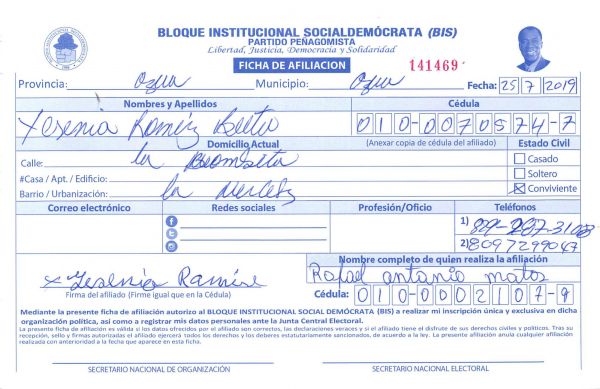 BLOQUE INSTITUCIONAL SOCIALDEMÓCRATA (BIS)
PARTIDO PEÑAGOMISTA
Libertad, Justicia, Democracia y Solidaridad
FICHA DE AFILIACION
141469
Provincia: Azua Municipio: Azua Fecha: 25/7/2019
Nombres y Apellidos Cédula
Yesenia Ramírez 010-0070574-7
Domicilio Actual (Anexar copia de cédula del afiliado) Estado Civil
Calle: la
Casado
Soltero
#Casa / Apt. / Edificio:
Conviviente
Barrio / Urbanización: la
Correo electrónico Redes sociales Profesión/Oficio Teléfonos
1)
2) 8097299067
Nombre completo de quien realiza la afiliación
x Yesenia Ramire Rafael antonio matos
Firma del afiliado (Firme igual que en la Cédula) Cédula: 010-0002107-9
Mediante la presente ficha de afiliación autorizo al BLOQUE INSTITUCIONAL SOCIAL DEMÓCRATA (BIS) a realizar mi inscripción única y exclusiva en dicha
organización política, asi como a registrar mis datos personales ante la Junta Central Electoral.
La presente ficha de afiliación es válida si los datos ofrecidos por el afiliado son correctos, las declaraciones veraces y si el afiliado tiene el disfrute de sus derechos civiles y políticos. Tras su
recepción, sello y firmas autorizadas el afiliado ejercerá todos los derechos y los deberes estatutariamente sancionados, de acuerdo a la ley. La presente afiliación anula cualquier afiliación
realizada con anterioridad a la fecha que aparece en esta ficha.
SECRETARIO NACIONAL DE ORGANIZACIÓN SECRETARIO NACIONAL ELECTORAL